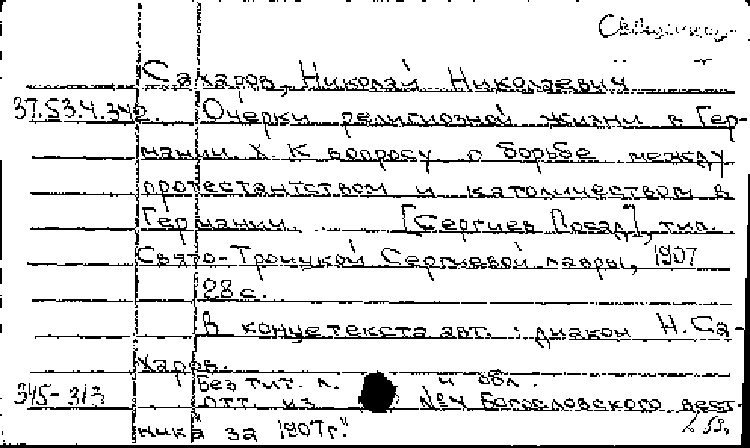 Сахаров, Николай Николаевич
37.53.4.342. Очерки религиозной жизни в Гер-
мании. X. К вопросу о борьбе между
протестантством и католичеством в
Германии. [Сергиев Посад], тип.
Свято-Троицкой Сергиевой лавры, 1907
28 с.
В конце текста авт.: диакон Н. Са-
харов.
Без тит. л. и обл.
345-313 отт. из №4 Богословского вест-
ника" за 1907г."